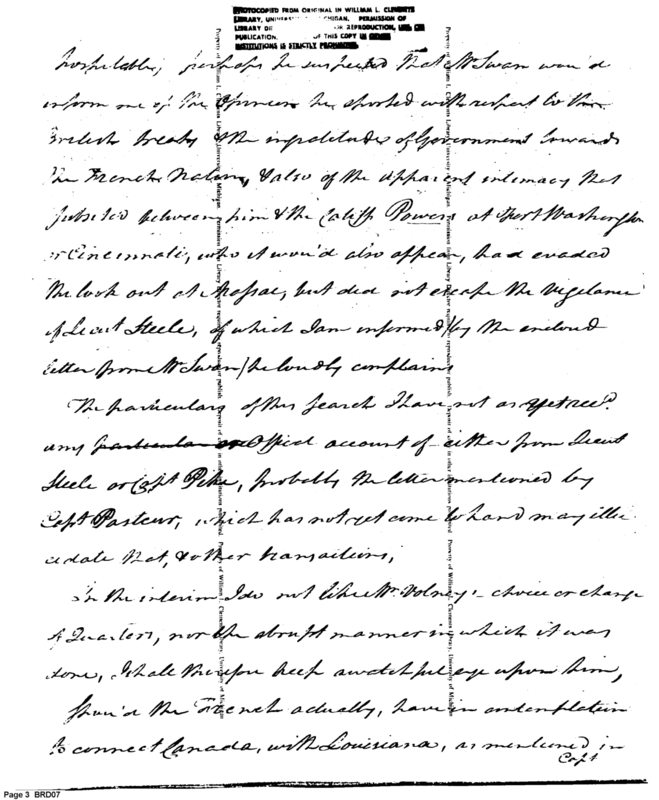 PHOTOCOPIED FROM ORIGINAL IN WILLIAM L. CLEMENTS
LIBRARY, CHIGAN. PERMISSION OF
LIBRARY OR REPRODUCTION,
PUBLICATION. OF THIS COPY
INSTITUTIONS IS STRICTLY PROHIBITED.
hospitable; perhaps he suspected that Mr Swan wou'd
inform me of the opinions he sported with respect to the
British treaty & the ingratitude of Government towards
the French Nation, & also of the apparent intimacy that
subsisted between him & the Caitiff Powers at Fort Washington
or Cincinnati, who it wou'd also appear, had evaded
the look out at Massac, but did not escape the vigelance
of Lieut Steele, of which I am informed /by the enclosed
letter from Mr Swan/ he loudly complains
The particulars of this search I have not as yet recd.
any official account of either from Lieut
Steele or Capt Pike, probably the letter mentioned by
Capt Pasteur, which has not yet come to hand may illu-
cidate that, & other transactions,
In the interim I do not like Mr. Volney's choice or change
of Quarters, nor the abrupt manner in which it was
done, I shall therefore keep a watchful eye upon him,
Shou'd the French actually, have in contemplation
to connect Canada, with Louisiana, as mentioned in
Capt
Property of William L. Clements Library, University of Michigan
Page 3 BRD07